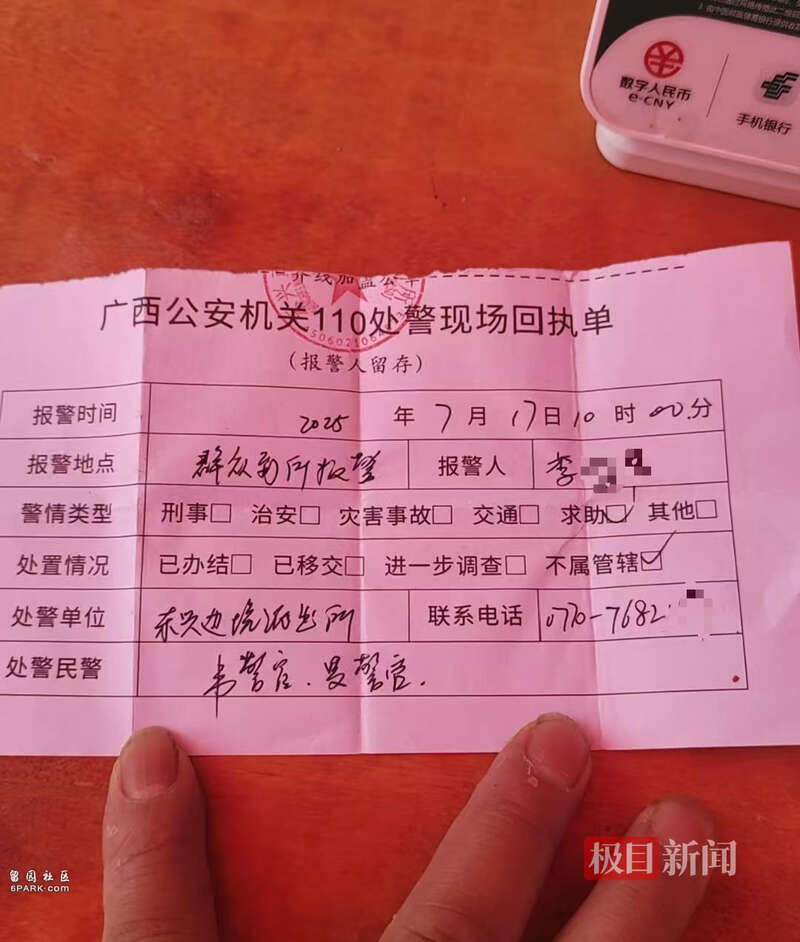 数字人民币
e-CNY
手机银行
界线加盖公章
广西公安机关110处警现场回执单
(报警人留存)
报警时间 2025 年 7 月 17 日 10 时 00 分
报警地点 群众到所报警 报警人 李
警情类型 刑事□ 治安□ 灾害事故□ 交通□ 求助☑ 其他□
处置情况 已办结□ 已移交□ 进一步调查□ 不属管辖☑
处警单位 东兴边境派出所 联系电话 0770-7682
处警民警 韦警官、
极目新闻
留园社区
6PARK.COM